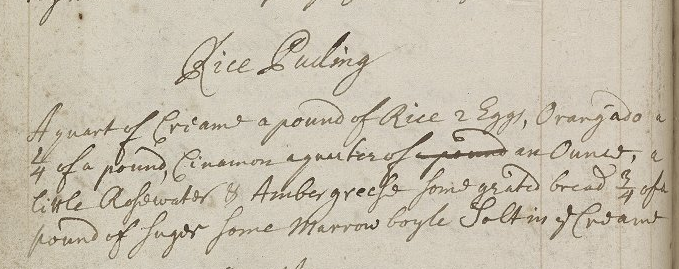 Rice Puding
A quart of Creame a pound of Rice 2 Eggs, Orangado a
1/4 of a pound, Cinamon a quarter of a pound an Ounce, a
little Rosewater & Ambergreese some grated bread 3/4 of a
pound of suger some Marrow boyle Salt in ye Creame